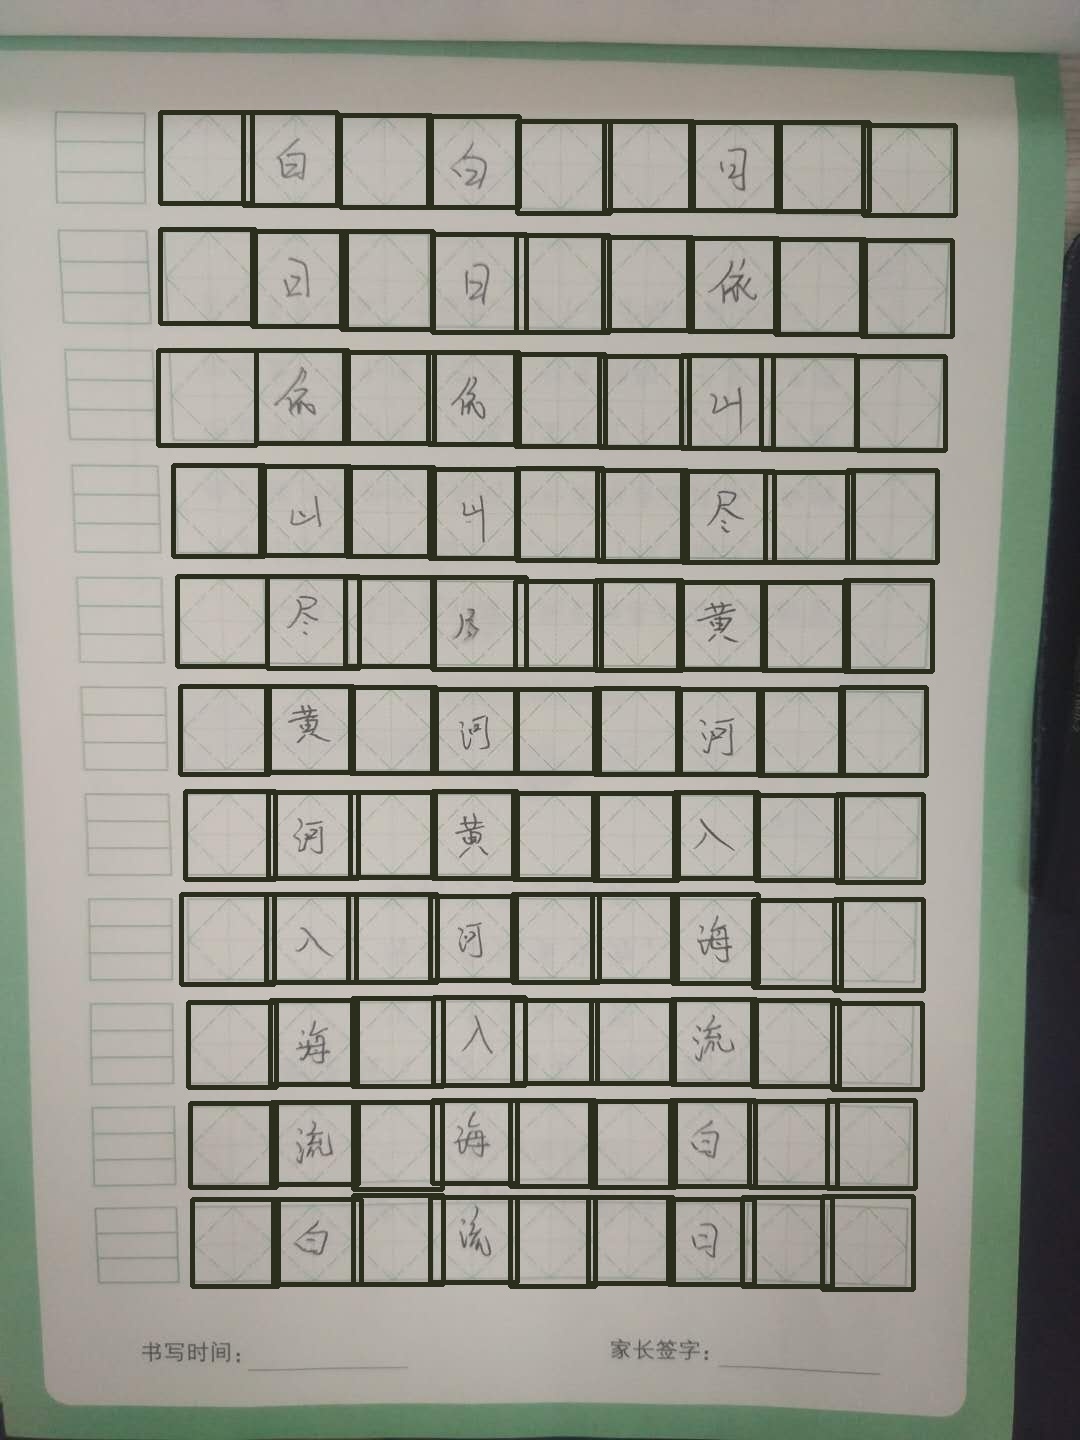 白 白 日
日 日 依
依 依 山
山 山 尽
尽 尽 黄
黄 河 河
河 黄 入
入 河 海
海 入 流
流 海 白
白 流 日
书写时间： 家长签字：